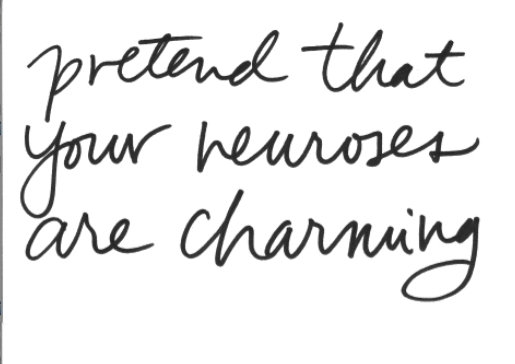 pretend that
your neuroses
are charming